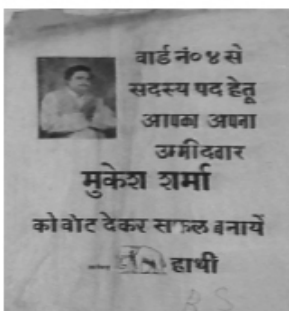 वार्ड नं० ४ से
सदस्य पद हेतू
आपका अपना
उम्मीदवार
मुकेश शर्मा
को वोट देकर सफल बनायें
हाथी
R S